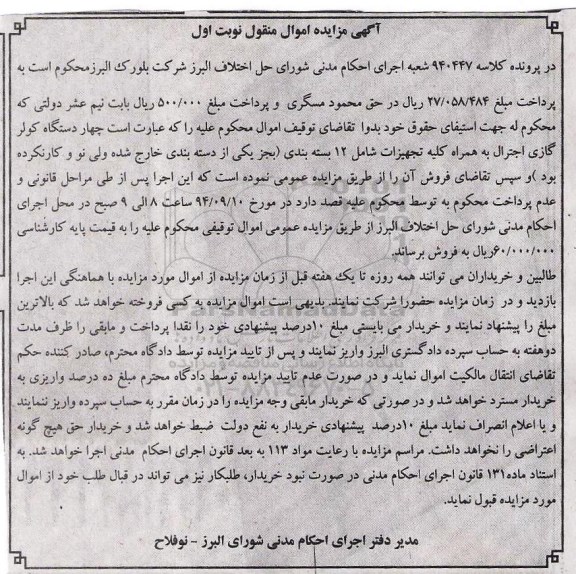 آگهی مزایده اموال منقول نوبت اول
در پرونده کلاسه ۹۴۰۴۴۷ شعبه اجرای احکام مدنی شورای حل اختلاف البرز شرکت بلورک البرزمحکوم است به
پرداخت مبلغ ۲۷/۰۵۸/۴۸۴ ریال در حق محمود مسگری و پرداخت مبلغ ۵۰۰/۰۰۰ ریال بابت نیم عشر دولتی که
محکوم له جهت استیفای حقوق خود بدوا تقاضای توقیف اموال محکوم علیه را که عبارت است چهار دستگاه کولر
گازی اجنرال به همراه کلیه تجهیزات شامل ۱۲ بسته بندی (بجز یکی از دسته بندی خارج شده ولی نو و کارنکرده
بود )و سپس تقاضای فروش آن را از طریق مزایده عمومی نموده است که این اجرا پس از طی مراحل قانونی و
عدم پرداخت محکوم به توسط محکوم علیه قصد دارد در مورخ ۹۴/۰۹/۱۰ ساعت ۸ الی ۹ صبح در محل اجرای
احکام مدنی شورای حل اختلاف البرز از طریق مزایده عمومی اموال توقیفی محکوم علیه را به قیمت پایه کارشناسی
۶۰/۰۰۰/۰۰۰ریال به فروش برساند.
طالبین و خریداران می توانند همه روزه تا یک هفته قبل از زمان مزایده از اموال مورد مزایده با هماهنگی این اجرا
بازدید و در زمان مزایده حضورا شرکت نمایند. بدیهی است اموال مزایده به کسی فروخته خواهد شد که بالاترین
مبلغ را پیشنهاد نمایند و خریدار می بایستی مبلغ ۱۰درصد پیشنهادی خود را نقدا پرداخت و مابقی را ظرف مدت
دوهفته به حساب سپرده دادگستری البرز واریز نمایند و پس از تایید مزایده توسط دادگاه محترم، صادر کننده حکم
تقاضای انتقال مالکیت اموال نماید و در صورت عدم تایید مزایده توسط دادگاه محترم مبلغ ده درصد واریزی به
خریدار مسترد خواهد شد و در صورتی که خریدار مابقی وجه مزایده را در زمان مقرر به حساب سپرده واریز ننمایند
و یا اعلام انصراف نماید مبلغ ۱۰درصد پیشنهادی خریدار به نفع دولت ضبط خواهد شد و خریدار حق هیچ گونه
اعتراضی را نخواهد داشت. مراسم مزایده با رعایت مواد ۱۱۳ به بعد قانون اجرای احکام مدنی اجرا خواهد شد. به
استناد ماده۱۳۱ قانون اجرای احکام مدنی در صورت نبود خریدار، طلبکار نیز می تواند در قبال طلب خود از اموال
مورد مزایده قبول نماید.
مدیر دفتر اجرای احکام مدنی شورای البرز - نوفلاح
ParsNamadData